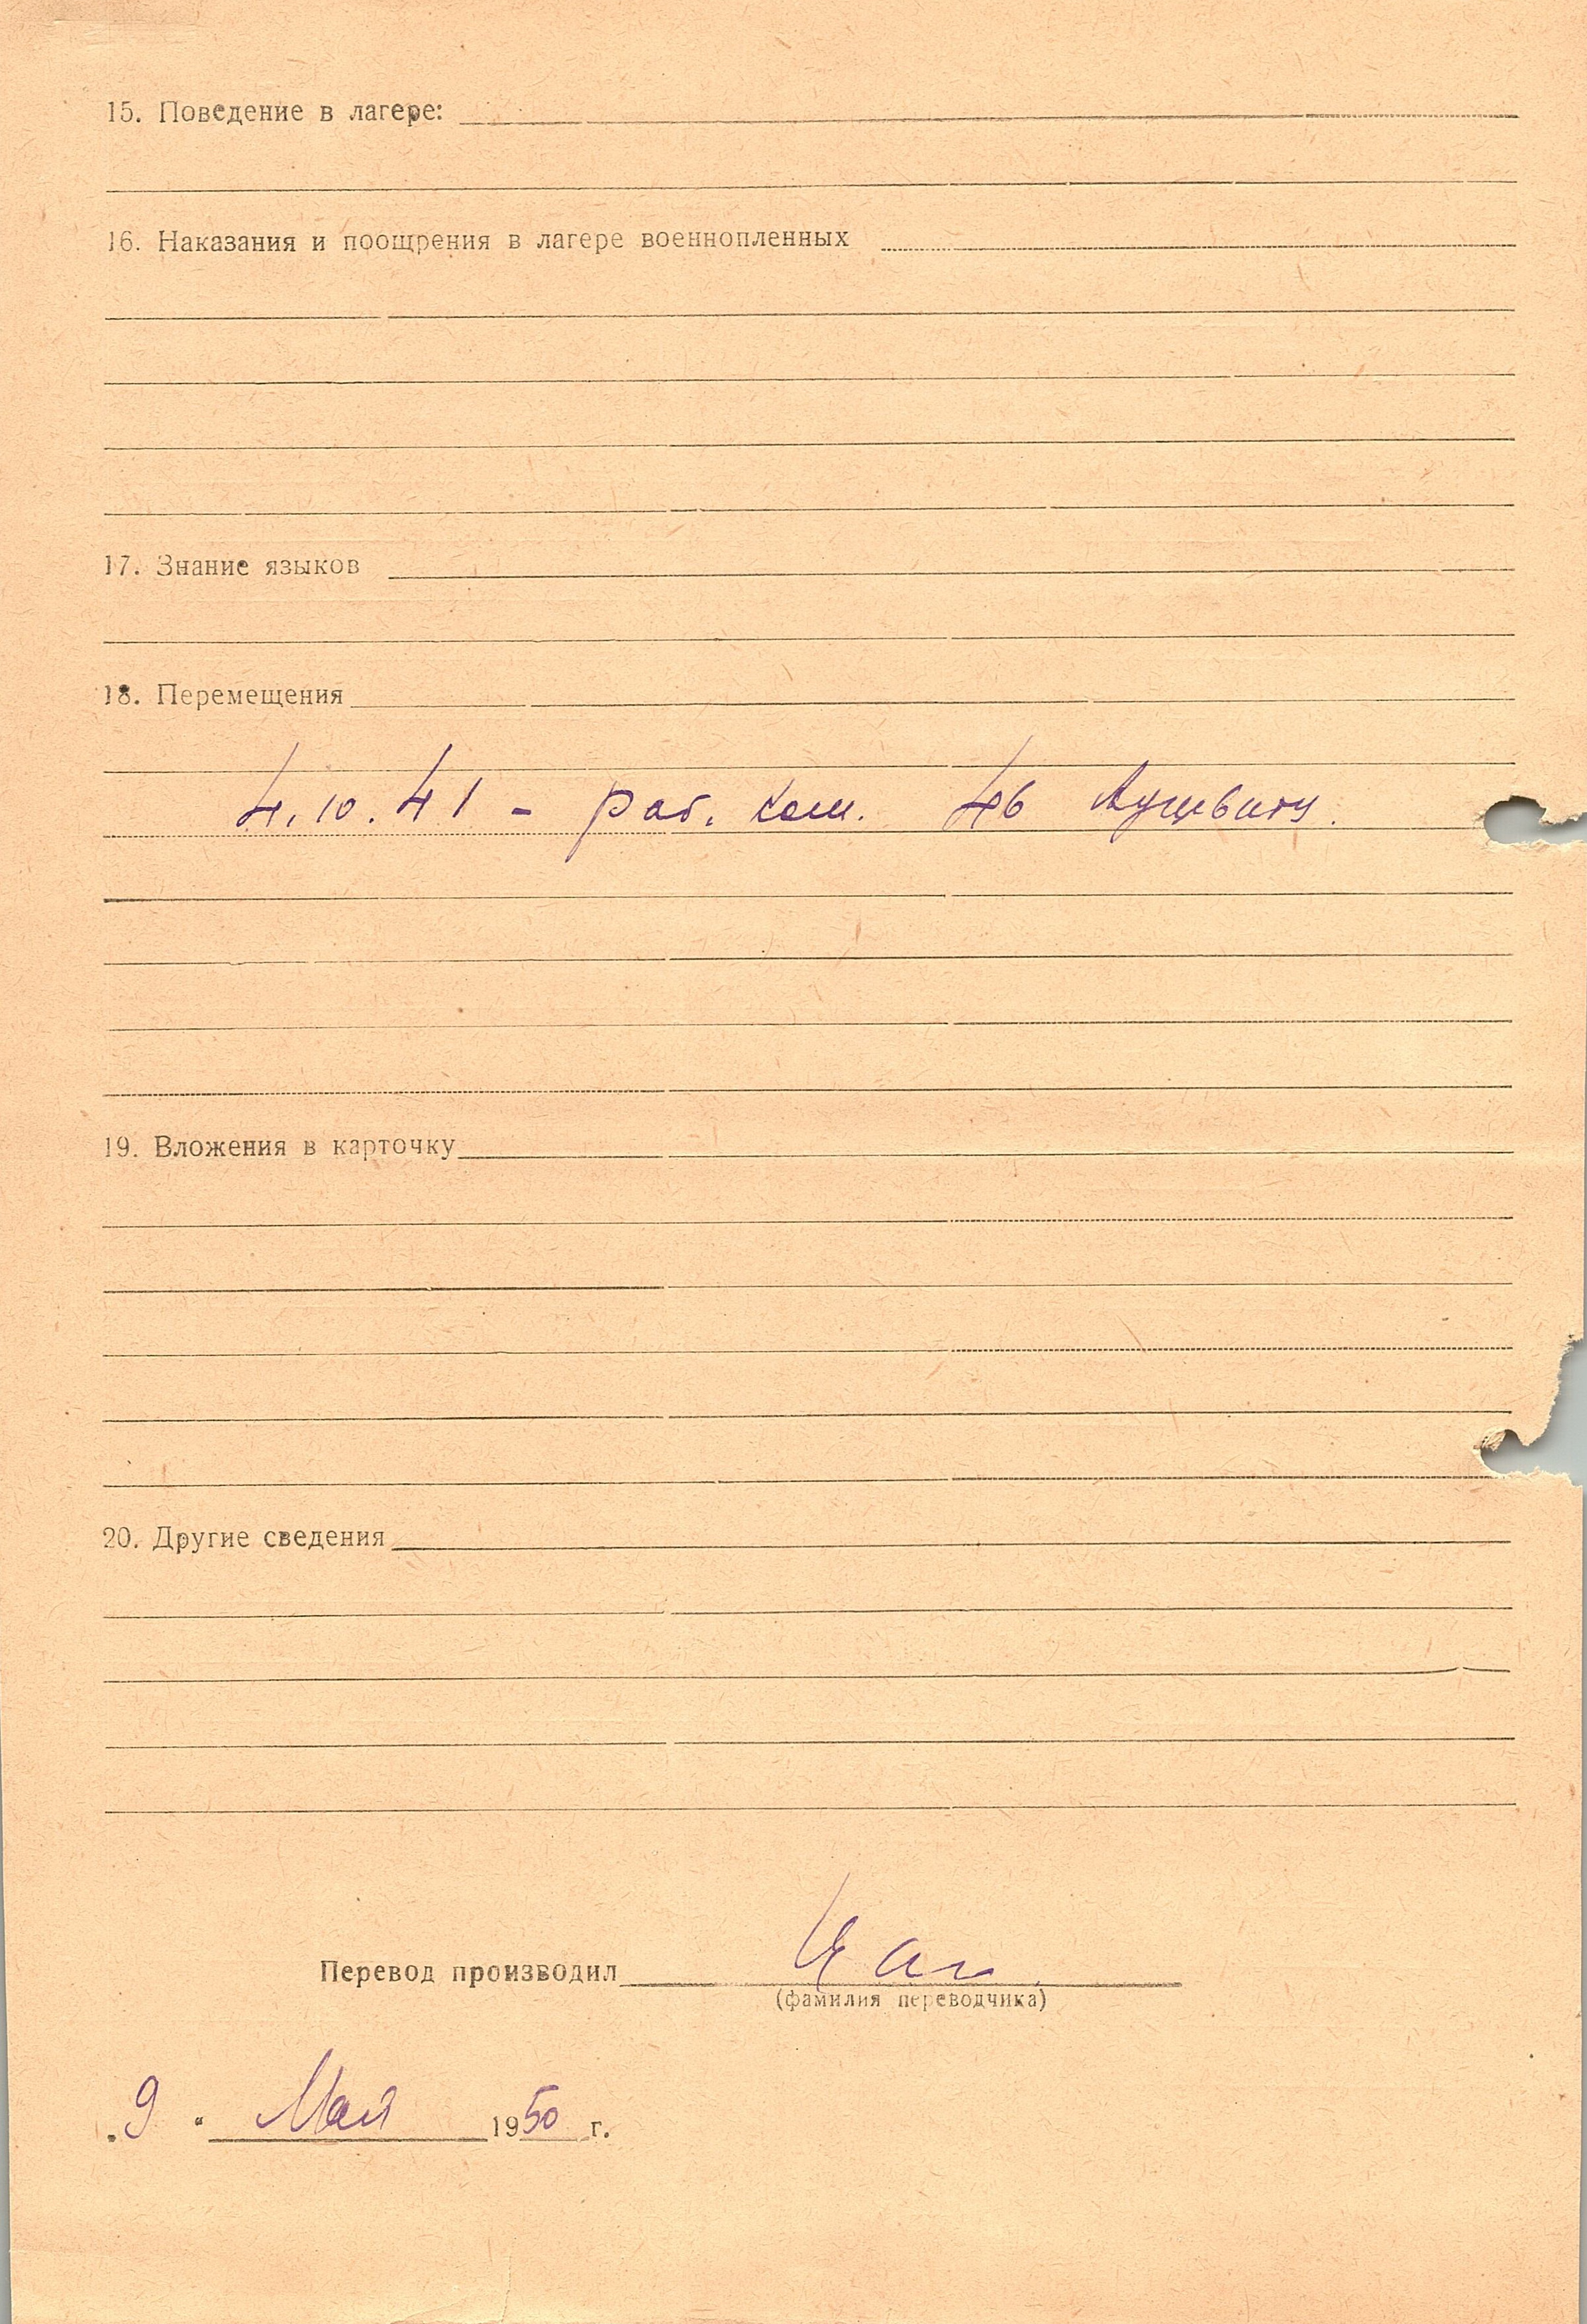 15. Поведение в лагере:
16. Наказания и поощрения в лагере военнопленных
17. Знание языков
18. Перемещения
4.10.41 - раб. ком. 46 Аушвитц.
19. Вложения в карточку
20. Другие сведения
Перевод производил
(фамилия переводчика)
„9“ Мая 1950 г.